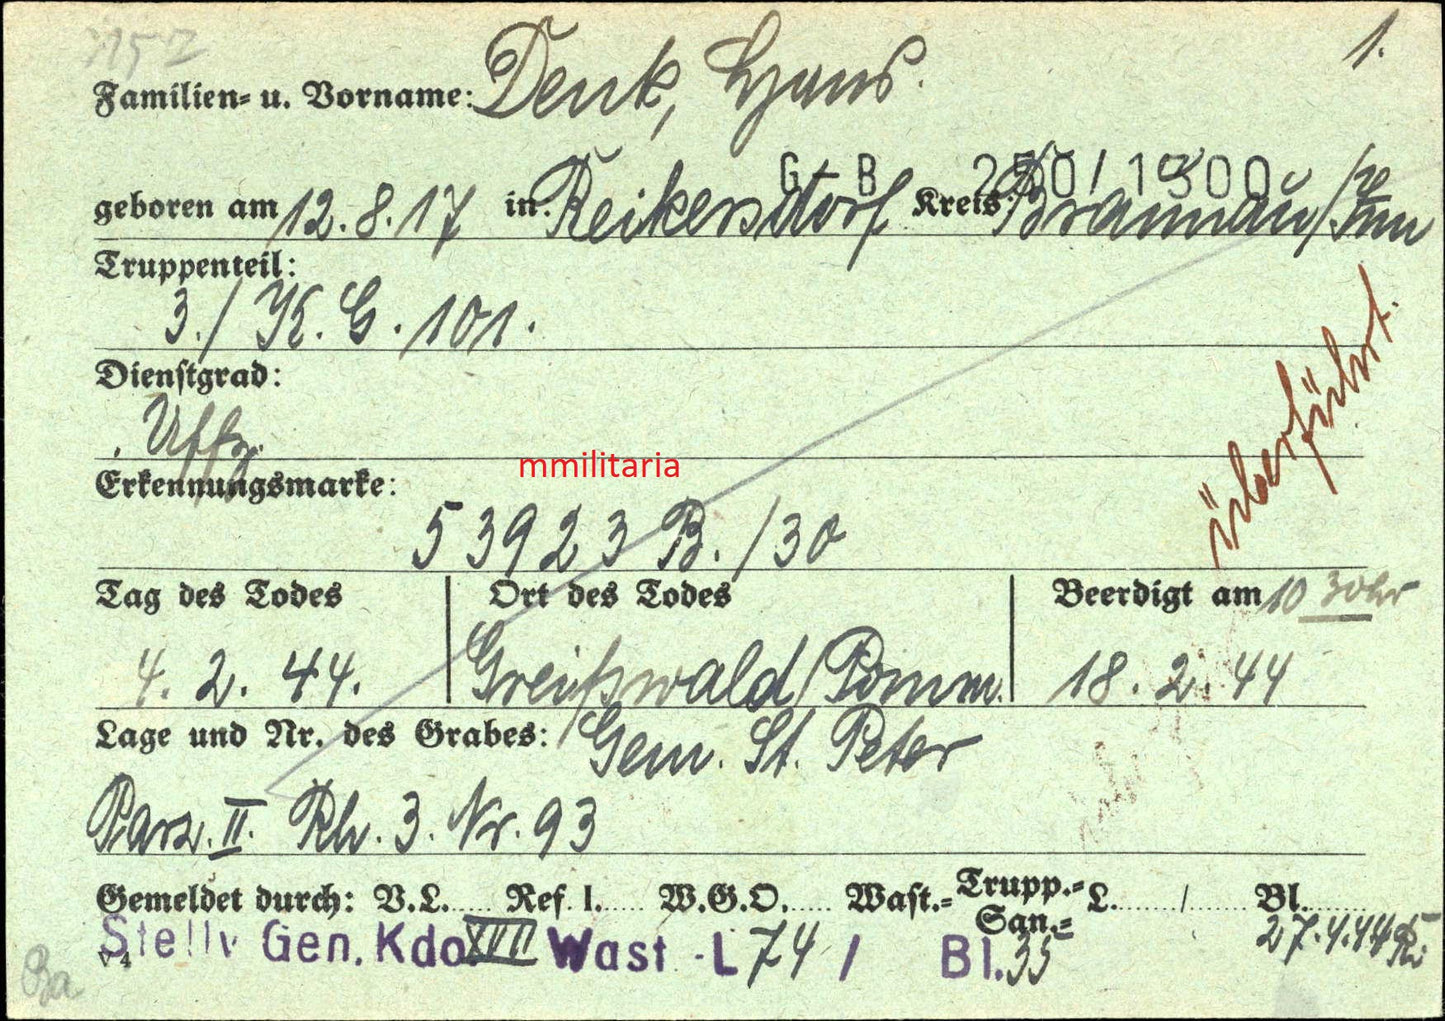 1.
Familien= u. Vorname: Denk, Hans.
G-B 250/1300
geboren am 12.8.17 in: Reikersdorf Kreis: Braunau/Inn
Truppenteil:
3./K.G.101.
Dienstgrad:
Uffz.
mmilitaria
Erkennungsmarke:
53923 B./30
überführt.
Tag des Todes Ort des Todes Beerdigt am 10 30 Uhr
4.2.44. Greifswald/Pomm. 18.2.44
Lage und Nr. des Grabes: Gem. St. Peter
Parz. II. Rh. 3. Nr. 93
Gemeldet durch: V.L..... Ref. I..... W.G.O..... Wast.= Trupp.= San.= L......./...... Bl.......
Stellv Gen. Kdo. XVII Wast -L 74 / Bl. 35 27.4.44
V 4
Ba